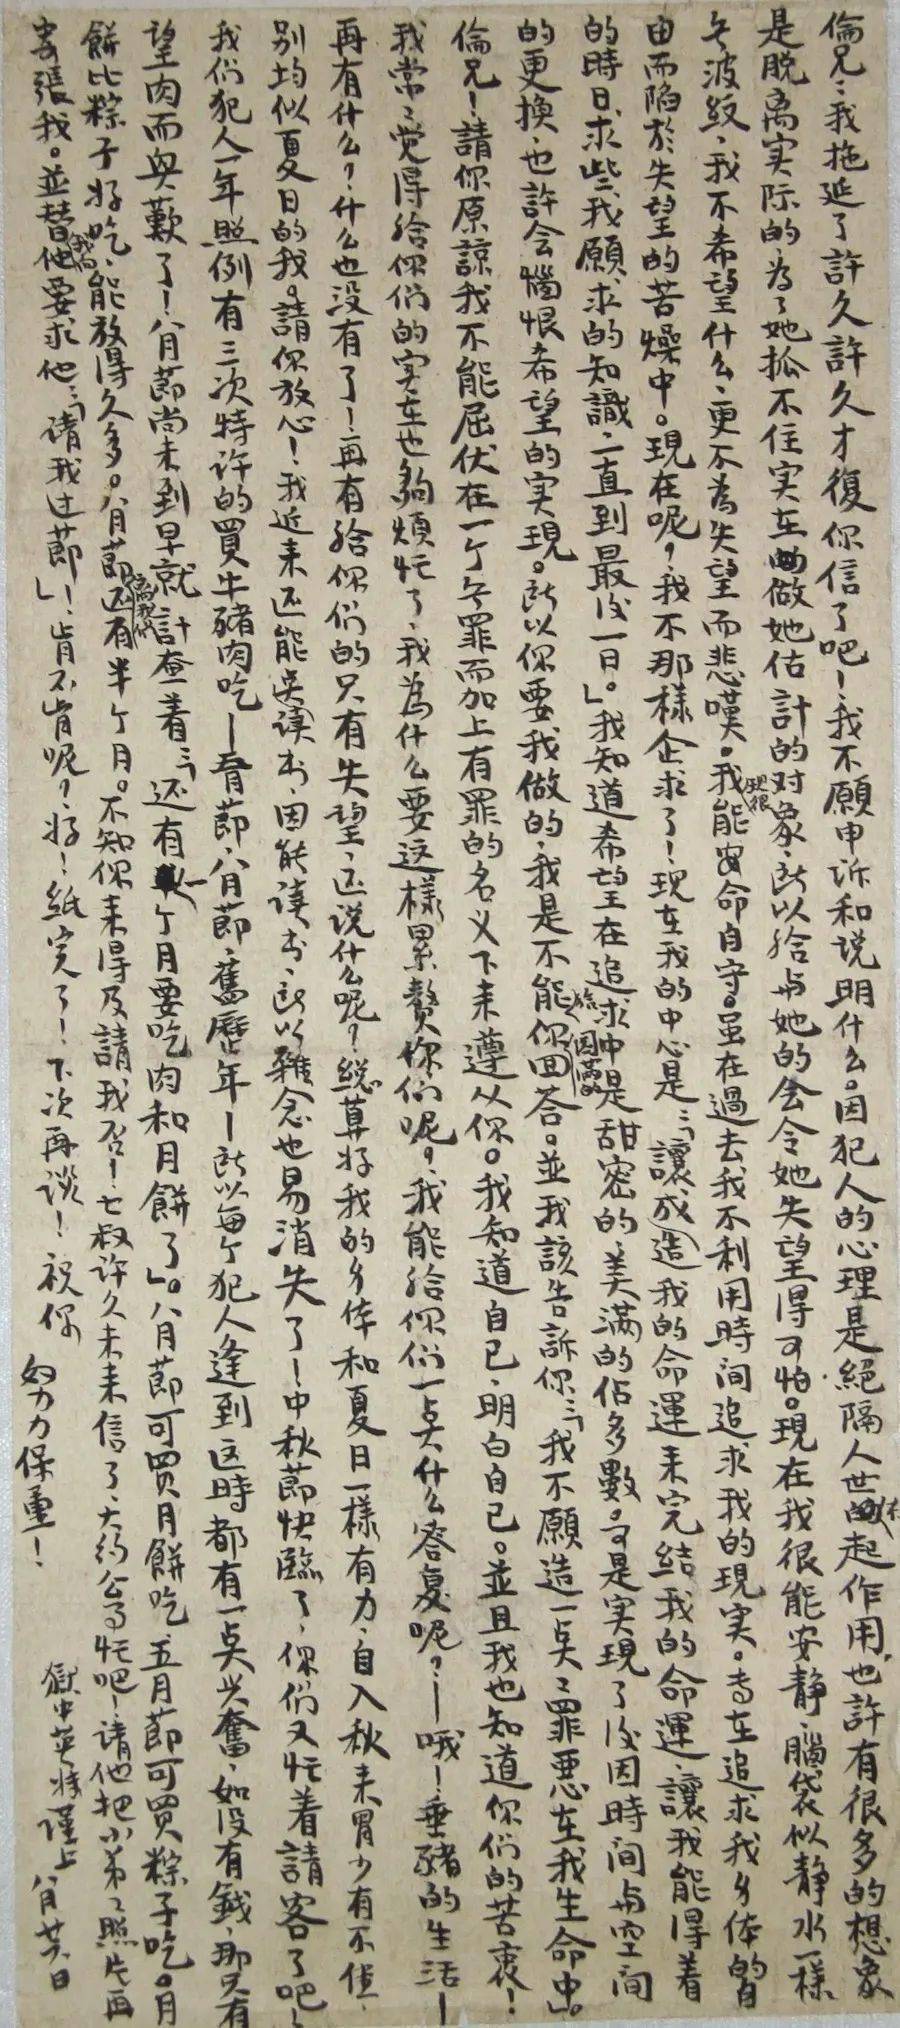 倫兄：我拖延了許久許久才復你信了吧！我不願申訴和说明什么。因犯人的心理是絕隔人世起作用，也許有很多的想象
是脱离实际的，为了她抓不住实在做她估計的对象，所以給与她的会令她失望得可怕。現在我很能安静，腦袋似静水一樣
无波紋，我不希望什么，更不為失望而悲嘆。我能安命自守。虽在過去我不利用時间追求我的現实。专在追求我身体的自
由而陷於失望的苦燥中。現在呢？我不那樣企求了！现在我的中心是：「讓成造我的命運来完結我的命運，讓我能得着
的時日，求些我願求的知識，一直到最后一日。」我知道希望在追求中是甜密的，美满的佔多數。可是实現了后因時间与空间
的更換，也許会惱恨希望的实現。所以你要我做的，我是不能給你圆满回答。並我該告訴你：「我不願造一点罪惡在我生命中。」
倫兄！請你原諒我不能屈伏在一个无罪而加上有罪的名义下来遵从你。我知道自己，明白自己。並且我也知道你们的苦衷！
我常常覚得給你们的实在也夠煩忙了，我為什么要這樣累贅你们呢？我能給你们一点什么答复呢？—哦！垂豬的生活—
再有什么？什么也没有了！再有給你们的只有失望，还说什么呢？總算好我的身体和夏日一樣有力，自入秋来胃少有不佳，
别均似夏日的我。請你放心！我近来还能够读书，因能读书，所以雜念也易消失了！中秋節快臨了，你们又忙着請客了吧！
我们犯人一年照例有三次特许的買牛豬肉吃—春節，八月節，舊歷年—所以每个犯人逢到这時都有一点兴奮，如没有錢，那只有
望肉而興歎了！八月節尚未到早就計查着：「还有一个月要吃肉和月餅了」。八月節可買月餅吃，五月節可買粽子吃。月
餅比粽子好吃，能放得久多。八月節还有半个月。不知你来得及請我否！七叔许久未来信了，大约公司忙吧！请他把小弟弟照片再
寄張我。並替我向他要求他：「请我过節」！肯不肯呢？好！紙完了！下次再谈！祝你
努力保重！
獄中英 謹上 八月廿六日